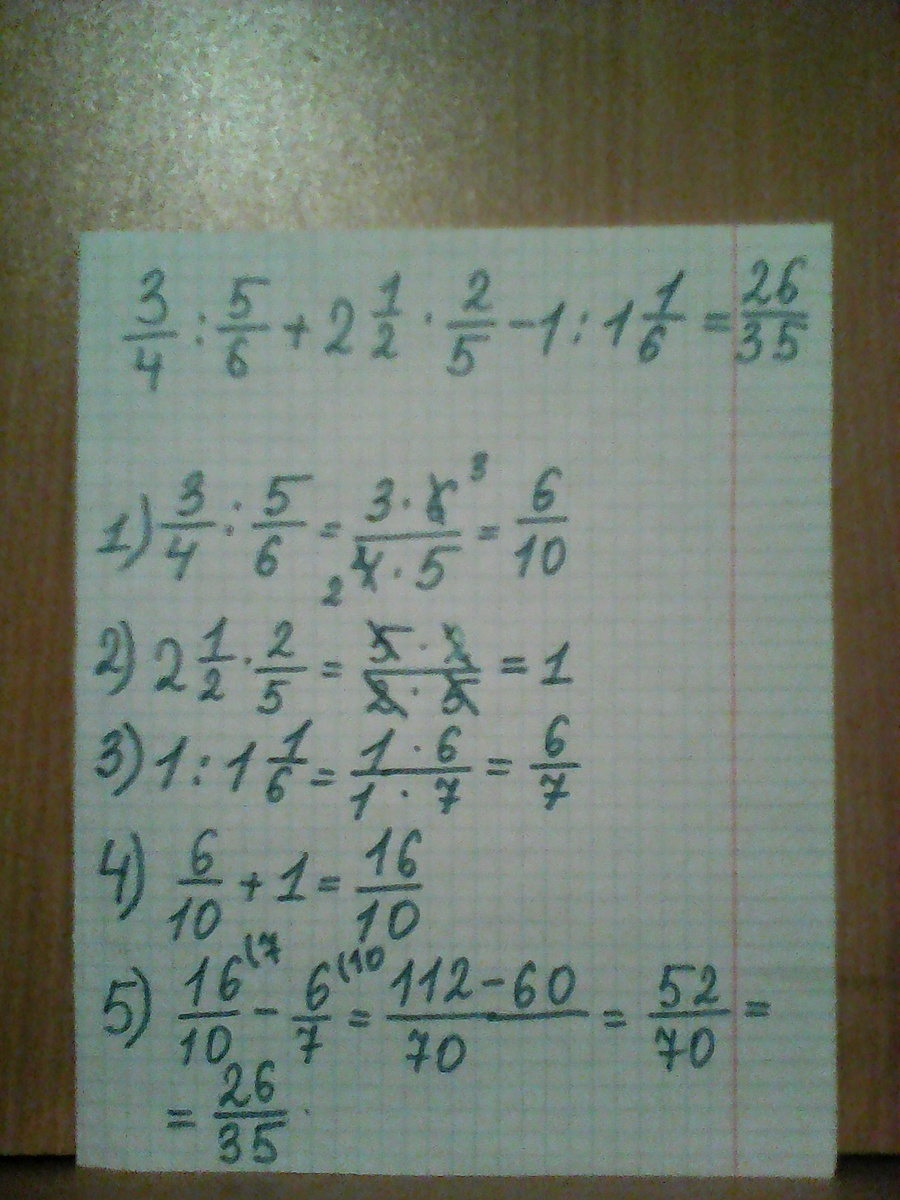 3/4 : 5/6 + 2 1/2 · 2/5 - 1 : 1 1/6 = 26/35
1) 3/4 : 5/6 = 3 · 6 3 / 2 4 · 5 = 6/10
2) 2 1/2 · 2/5 = 5 · 2 / 2 · 5 = 1
3) 1 : 1 1/6 = 1 · 6 / 1 · 7 = 6/7
4) 6/10 + 1 = 16/10
5) 16/10 (7 - 6/7 (10 = 112 - 60 / 70 = 52/70 =
= 26/35